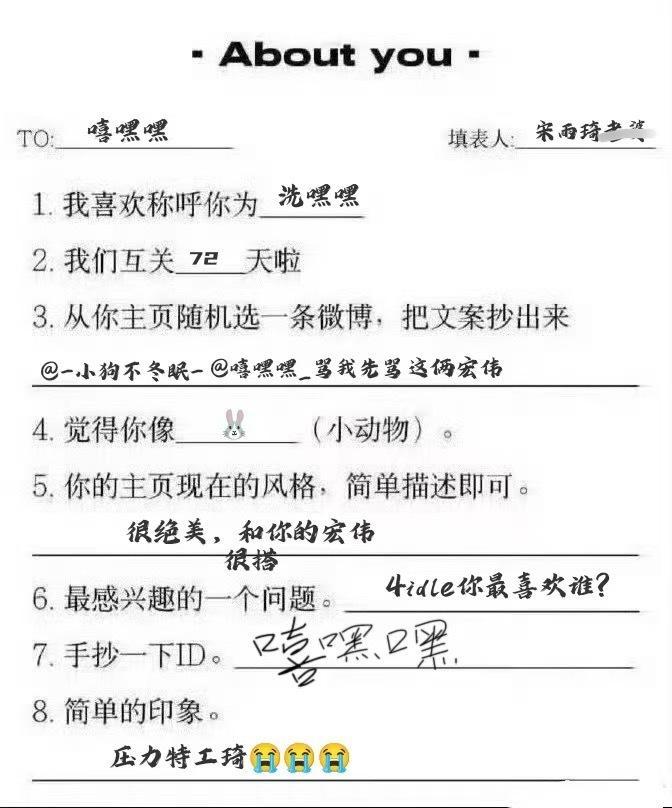 - About you -
TO: 嘻嘿嘿 填表人: 宋雨琦老婆
1. 我喜欢称呼你为 洗嘿嘿
2. 我们互关 72 天啦
3. 从你主页随机选一条微博，把文案抄出来
@-小狗不冬眠- @嘻嘿嘿_骂我先骂这俩宏伟
4. 觉得你像 🐰 （小动物）。
5. 你的主页现在的风格，简单描述即可。
很绝美，和你的宏伟
很搭
6. 最感兴趣的一个问题。 4idle你最喜欢谁？
7. 手抄一下ID。 嘻嘿嘿
8. 简单的印象。
压力特工琦😭😭😭